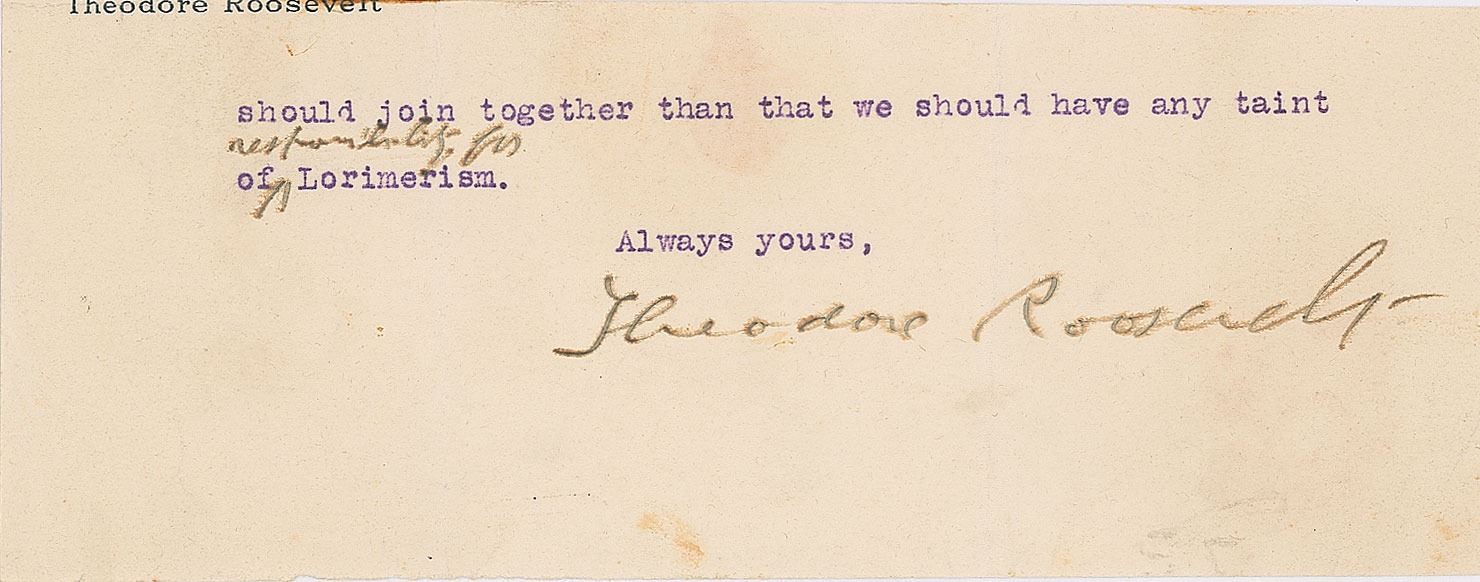 Theodore Roosevelt
should join together than that we should have any taint
responsibility for
of Lorimerism.
Always yours,
Theodore Roosevelt